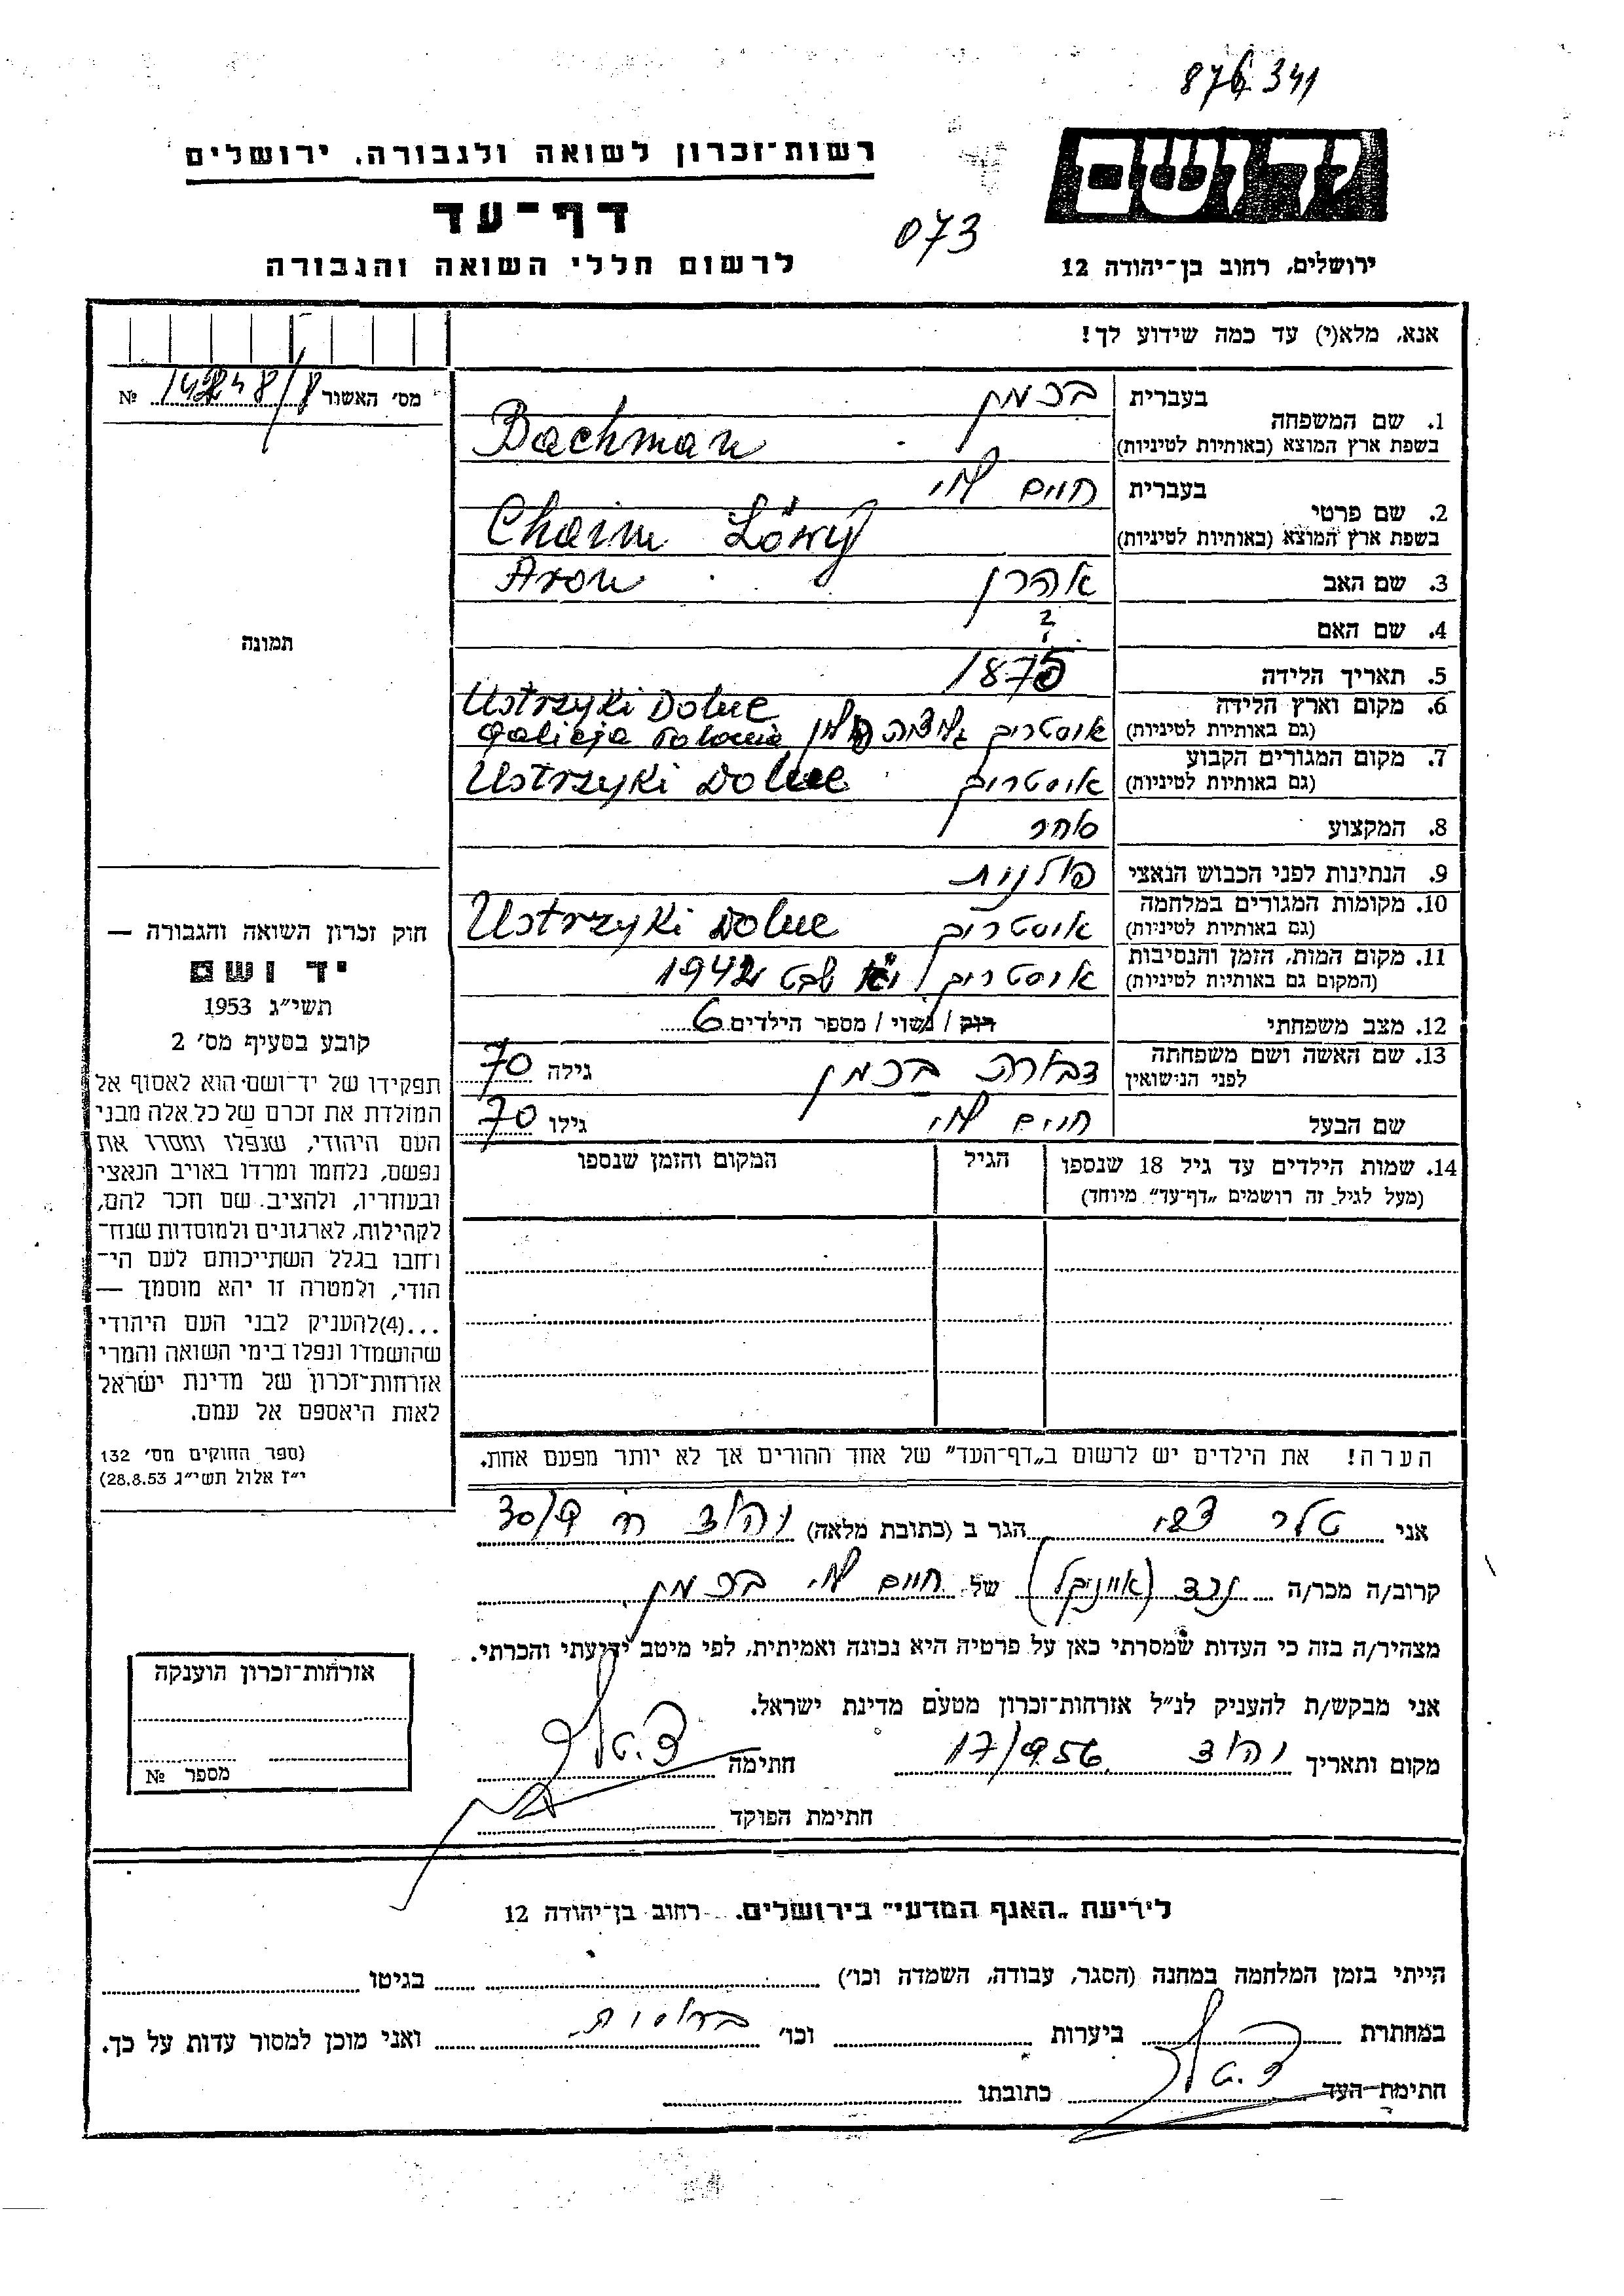 876341
רשות־זכרון לשואה ולגבורה, ירושלים
יד ושם
דף־עד
073
לרשום חללי השואה והגבורה
ירושלים, רחוב בן־יהודה 12
אנא, מלא(י) עד כמה שידוע לך!
מס׳ האשור №
1. שם המשפחה
בעברית בכמן
בשפת ארץ המוצא (באותיות לטיניות) Bachman
2. שם פרטי
בעברית חיים לוי
בשפת ארץ המוצא (באותיות לטיניות) Chaim Löwy
3. שם האב אהרן Aron
4. שם האם ?
5. תאריך הלידה 1875
6. מקום וארץ הלידה Ustrzyki Dolne
(גם באותיות לטיניות) אוסטריק גליציה פולין Galicja Polonia
7. מקום המגורים הקבוע
(גם באותיות לטיניות) אוסטריק Ustrzyki Dolne
8. המקצוע סוחר
9. הנתינות לפני הכבוש הנאצי פולנית
10. מקומות המגורים במלחמה
(גם באותיות לטיניות) אוסטריק Ustrzyki Dolne
11. מקום המות, הזמן והנסיבות
(המקום גם באותיות לטיניות) אוסטריק שבט 1942
12. מצב משפחתי רוק / נשוי / מספר הילדים 6
13. שם האשה ושם משפחתה
לפני הנישואין דבורה בכמן גילה 70
שם הבעל חיים לוי גילו 70
14. שמות הילדים עד גיל 18 שנספו הגיל המקום והזמן שנספו
(מעל לגיל זה רושמים „דף־עד״ מיוחד)
הערה! את הילדים יש לרשום ב„דף־העד״ של אחד ההורים אך לא יותר מפעם אחת.
תמונה
חוק זכרון השואה והגבורה —
יד ושם
תשי״ג 1953
קובע בסעיף מס׳ 2
תפקידו של יד־ושם הוא לאסוף אל
המולדת את זכרם של כל אלה מבני
העם היהודי, שנפלו ומסרו את
נפשם, נלחמו ומרדו באויב הנאצי
ובעוזריו, ולהציב שם וזכר להם,
לקהילות, לארגונים ולמוסדות שנח־
רחבו בגלל השתייכותם לעם הי־
הודי, ולמטרה זו יהא מוסמך —
...(4)להעניק לבני העם היהודי
שהושמדו ונפלו בימי השואה והמרי
אזרחות־זכרון של מדינת ישראל
לאות היאספם אל עמם.
(ספר החוקים מס׳ 132
י״ז אלול תשי״ג 28.8.53)
אני טלר הגר ב (כתובת מלאה)
קרוב/ה מכר/ה נכד (אייניקל) של חיים לוי בכמן
מצהיר/ה בזה כי העדות שמסרתי כאן על פרטיה היא נכונה ואמיתית, לפי מיטב ידיעתי והכרתי.
אני מבקש/ת להעניק לנ״ל אזרחות־זכרון מטעם מדינת ישראל.
מקום ותאריך 17/9.56 חתימה
חתימת הפוקד
אזרחות־זכרון הוענקה
מספר №
לידיעת „האגף המדעי״ בירושלים. רחוב בן־יהודה 12
הייתי בזמן המלחמה במחנה (הסגר, עבודה, השמדה וכו׳) בגיטו
במחתרת ביערות וכו׳ ברוסיה ואני מוכן למסור עדות על כך.
חתימת העד כתובתו